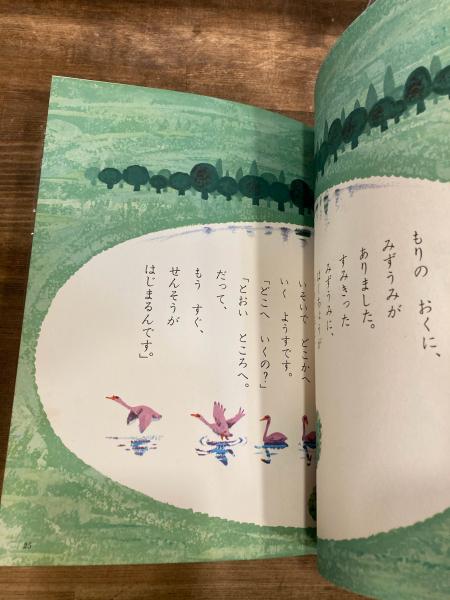 もりの おくに、
みずうみが
ありました。
すみきった
みずうみに、
はくちょうが
いそいで どこかへ
いく ようすです。
「どこへ いくの？」
「とおい ところへ。
だって、
もう すぐ、
せんそうが
はじまるんです」。
25